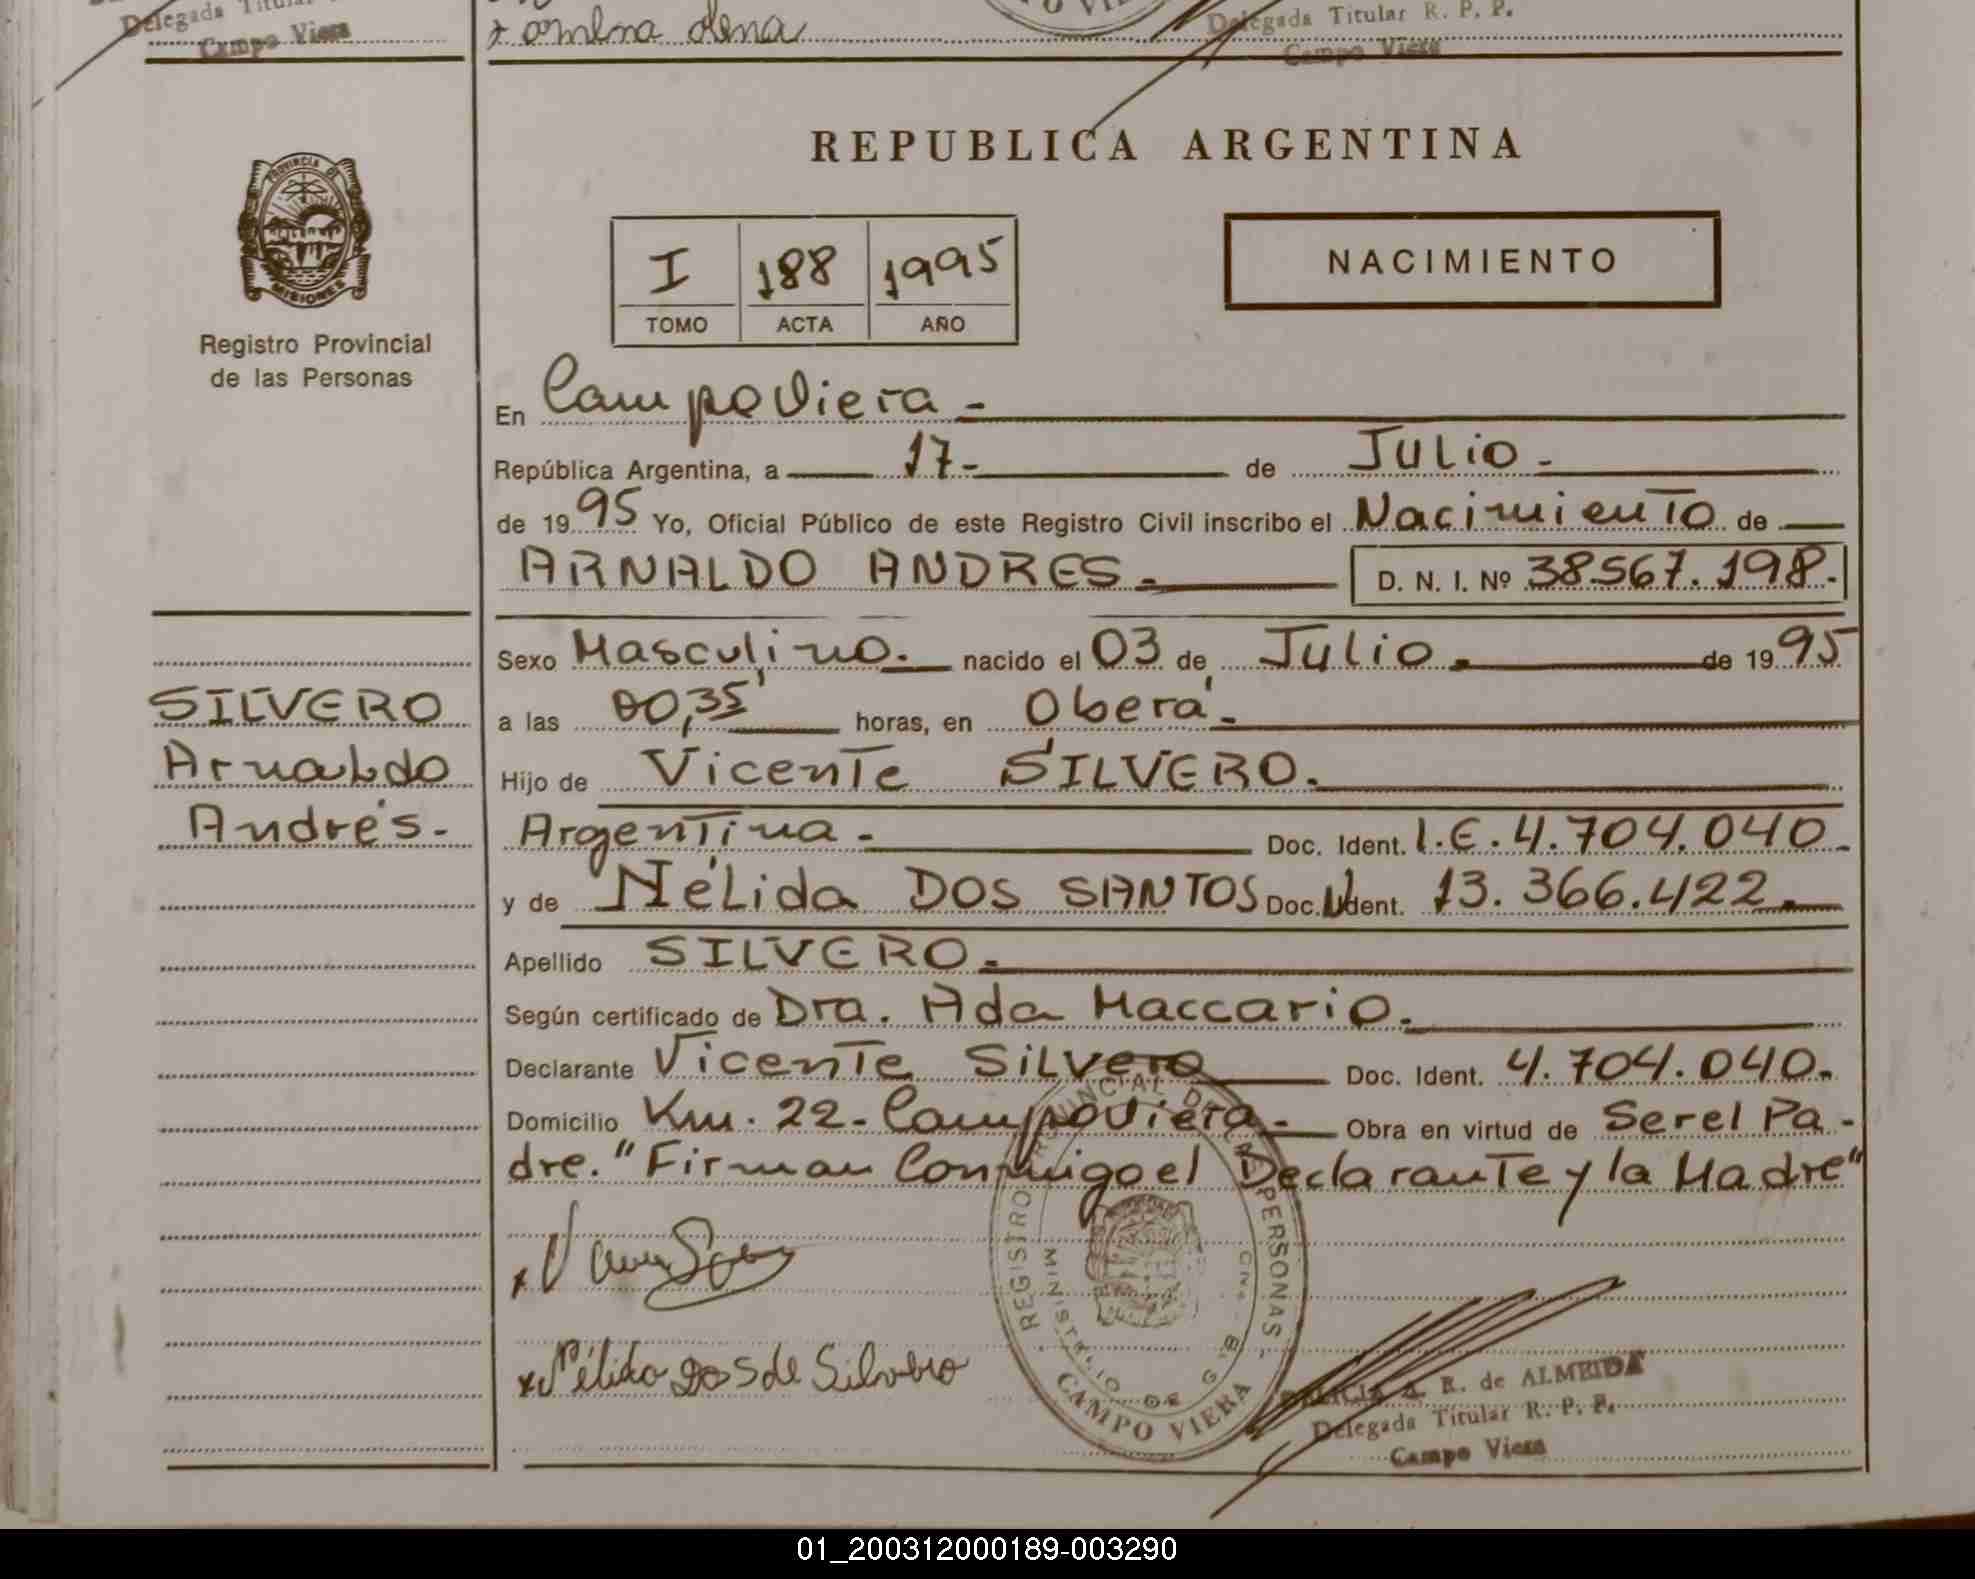 Delegada Titular
Campo Viera
Delegada Titular R. P. P.
Campo Viera
REPUBLICA ARGENTINA
PROVINCIA DE
MISIONES
Registro Provincial
de las Personas
I 188 1995
TOMO ACTA AÑO
NACIMIENTO
En Campo Viera -
República Argentina, a 17- de Julio -
de 1995 Yo, Oficial Público de este Registro Civil inscribo el Nacimiento de
ARNALDO ANDRES - D. N. I. Nº 38.567.198.-
Sexo Masculino. nacido el 03 de Julio. de 1995
a las 00,35' horas, en Oberá.
Hijo de Vicente SILVERO.
Argentina - Doc. Ident. L.E. 4.704.040.-
y de Nélida DOS SANTOS Doc. Ident. 13.366.422.
Apellido SILVERO.
Según certificado de Dra. Ada Maccario.
Declarante Vicente Silvero Doc. Ident. 4.704.040.
Domicilio Km. 22- Campo Viera - Obra en virtud de Ser el Pa-
dre. "Firman Conmigo el Declarante y la Madre"
SILVERO
Arnaldo
Andrés.-
x Nélida Dos de Silvero
REGISTRO PROVINCIAL DE LAS PERSONAS
MINISTERIO DE GOB
CAMPO VIERA
ALICIA A. R. de ALMEIDA
Delegada Titular R. P. P.
Campo Viera
01_200312000189-003290